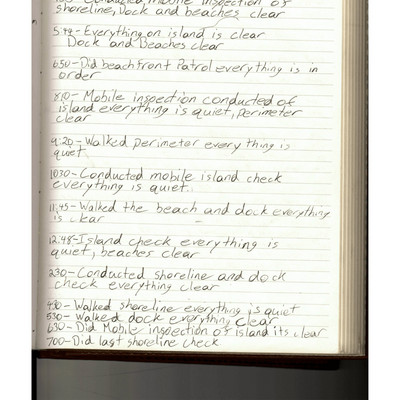 Conducted mobile inspection of
shoreline, Dock and beaches clear
5:44-Everything on island is clear
Dock and Beaches clear
650-Did beachfront Patrol everything is in
order
810- Mobile inspection conducted of
island everything is quiet, perimeter
clear
9:20-Walked perimeter everything is
quiet
1030-Conducted mobile island check
everything is quiet.
11:45-Walked the beach and dock everything
is clear
12:48-Island check everything is
quiet, beaches clear
230-Conducted shoreline and dock
check everything clear
430-Walked shoreline everything is quiet
530-Walked dock everything clear
630-Did Mobile inspection of island its clear
700-Did last shoreline check